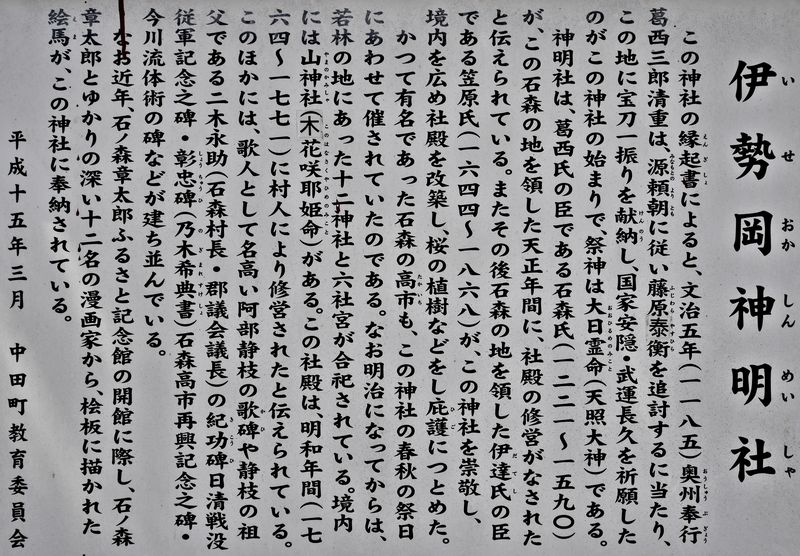 伊勢岡神明社
いせおかしんめいしゃ
この神社の縁起書によると、文治五年(一一八五)奥州奉行
葛西三郎清重は、源頼朝に従い藤原泰衡を追討するに当たり、
この地に宝刀一振りを献納し、国家安隠・武運長久を祈願した
のがこの神社の始まりで、祭神は大日霊命(天照大神)である。
神明社は、葛西氏の臣である石森氏(一二二一〜一五九〇)
が、この石森の地を領した天正年間に、社殿の修営がなされた
と伝えられている。またその後石森の地を領した伊達氏の臣
である笠原氏(一六四四〜一八六八)が、この神社を崇敬し、
境内を広め社殿を改築し、桜の植樹などをし庇護につとめた。
かつて有名であった石森の高市も、この神社の春秋の祭日
にあわせて催されていたのである。なお明治になってからは、
若林の地にあった十二神社と六社宮が合祀されている。境内
には山神社(木花咲耶姫命)がある。この社殿は、明和年間(一七
六四〜一七七一)に村人により修営されたと伝えられている。
このほかには、歌人として名高い阿部静枝の歌碑や静枝の祖
父である二木永助(石森村長・郡議会議長)の紀功碑日清戦没
従軍記念之碑・彰忠碑(乃木希典書)石森高市再興記念之碑・
今川流体術の碑などが建ち並んでいる。
なお近年、石ノ森章太郎ふるさと記念館の開館に際し、石ノ森
章太郎とゆかりの深い十二名の漫画家から、桧板に描かれた
絵馬が、この神社に奉納されている。
平成十五年三月 中田町教育委員会